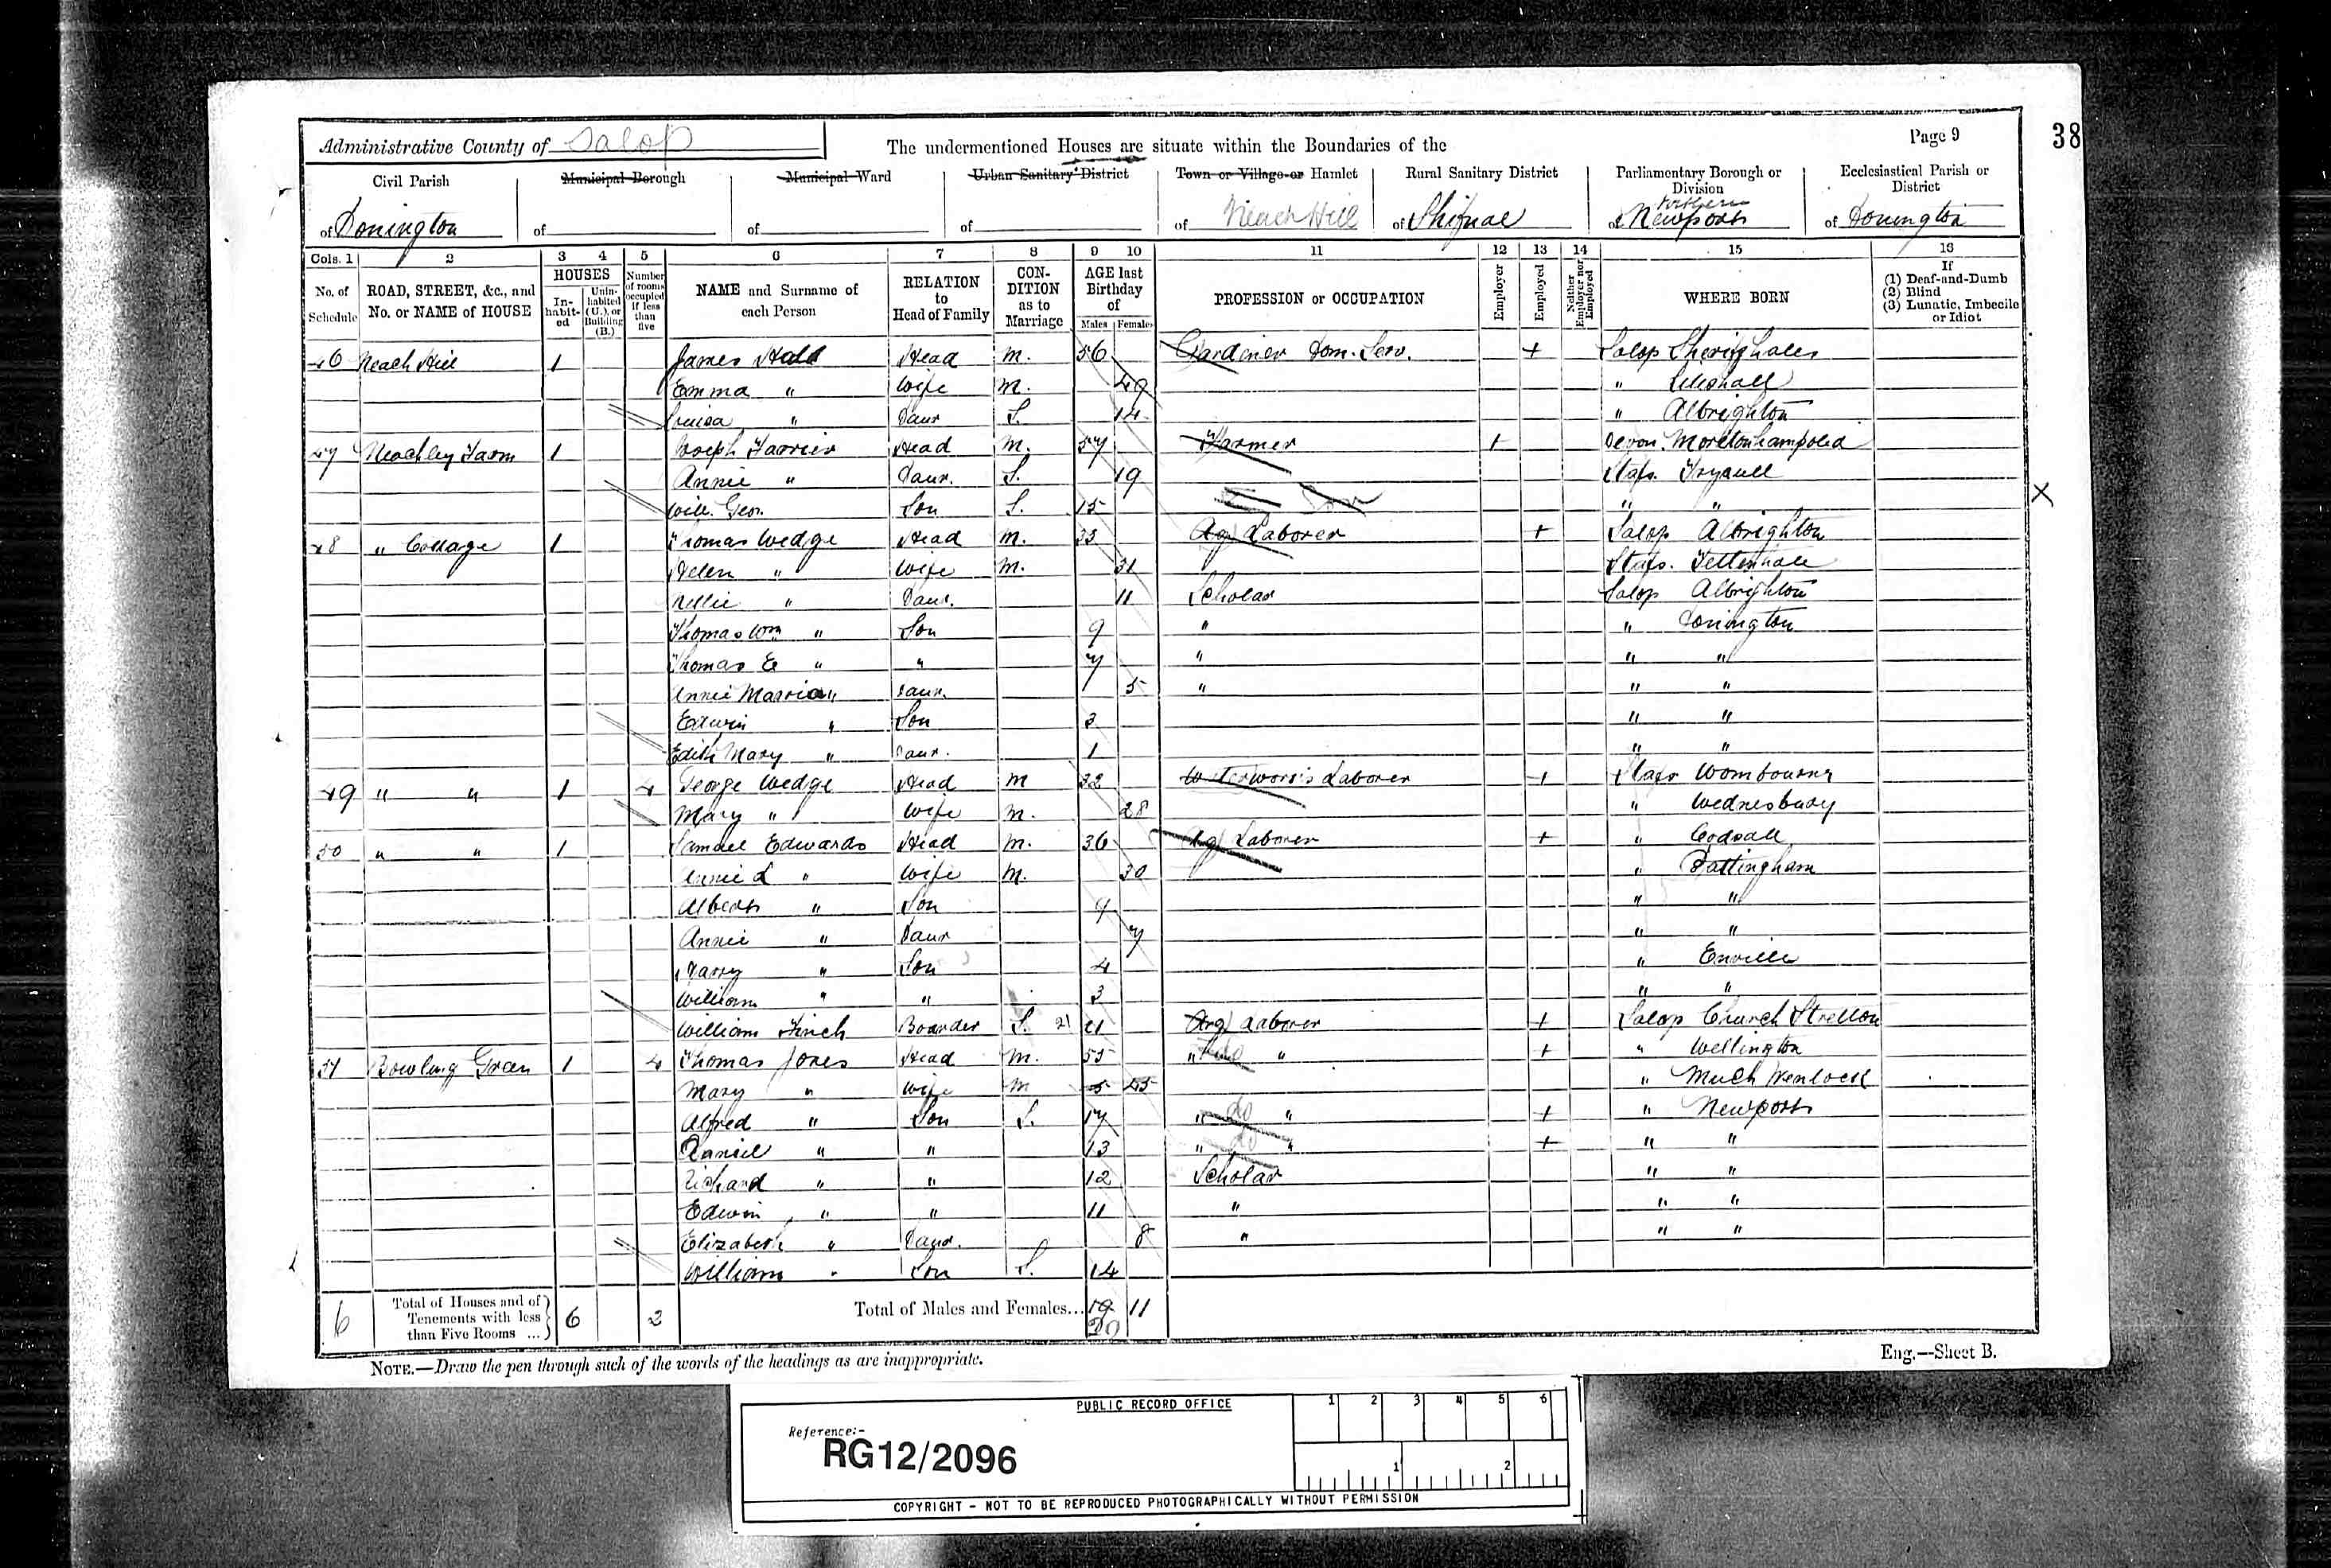 Administrative County of Salop
The undermentioned Houses are situate within the Boundaries of the
Page 9
38
Civil Parish
Municipal Borough
Municipal Ward
Urban Sanitary District
Town or Village or Hamlet
Rural Sanitary District
Parliamentary Borough or Division
Ecclesiastical Parish or District
of Donington
of
of
of
of Neach Hill
of Shifnal
of Newport
of Donington
Cols. 1 2 3 4 5 6 7 8 9 10 11 12 13 14 15 16
No. of Schedule
ROAD, STREET, &c., and No. or NAME of HOUSE
HOUSES
Inhabited
Uninhabited (U.), or Building (B.)
Number of rooms occupied if less than five
NAME and Surname of each Person
RELATION to Head of Family
CONDITION as to Marriage
AGE last Birthday of
Males Females
PROFESSION or OCCUPATION
Employer
Employed
Neither Employer nor Employed
WHERE BORN
If
(1) Deaf-and-Dumb
(2) Blind
(3) Lunatic, Imbecile or Idiot
46 Neach Hill 1 James Hall Head M. 56 Gardiner Dom. Serv. + Salop Sheriffhales
Emma " Wife M. 49 " Lilleshall
Louisa " Daur S. 14 " Albrighton
47 Neachley Farm 1 Joseph Farrier Head M. 57 Farmer + Devon. Moretonhampstead
Annie " Daur. S. 19 Stafs. Trysull
Will. Geo. Son S. 15 " "
48 " Cottage 1 Thomas Wedge Head M. 33 Ag Laborer + Salop Albrighton
Helen " Wife M. 31 Stafs. Tettenhall
Nellie " Daur. 11 Scholar Salop Albrighton
Thomas Wm " Son 9 " " Donington
Thomas E " " 7 " " "
Annie Marria " Daur. 5 " " "
Edwin " Son 3 " "
Edith Mary " Daur. 1 " "
49 " " 1 4 George Wedge Head M 32 Waterworks Laborer + Stafs Wombourn
Mary " Wife M. 28 " Wednesbury
50 " " 1 Samuel Edwards Head M. 36 Ag Laborer + " Codsall
Annie L " Wife M. 30 " Pattingham
Albert " Son 9 " "
Annie " Daur 7 " "
Harry " Son 4 " Enville
William " " 3 " "
William Finch Boarder S. 21 21 Ag Laborer + Salop Church Stretton
51 Bowling Green 1 4 Thomas Jones Head M. 55 " " + " Wellington
Mary " Wife M 5 45 " Much Wenlock
Alfred " Son S. 17 " do " + " Newport
Daniel " " 13 " do " + " "
Richard " " 12 Scholar " "
Edwin " " 11 " " "
Elizabeth " Daur. 8 " " "
William " Son S. 14
6
Total of Houses and of Tenements with less than Five Rooms ...
6 2
Total of Males and Females...
19 11
20
NOTE.—Draw the pen through such of the words of the headings as are inappropriate.
Eng.—Sheet B.
PUBLIC RECORD OFFICE
1 2 3 4 5 6
Reference:-
RG12/2096
1 2
COPYRIGHT - NOT TO BE REPRODUCED PHOTOGRAPHICALLY WITHOUT PERMISSION